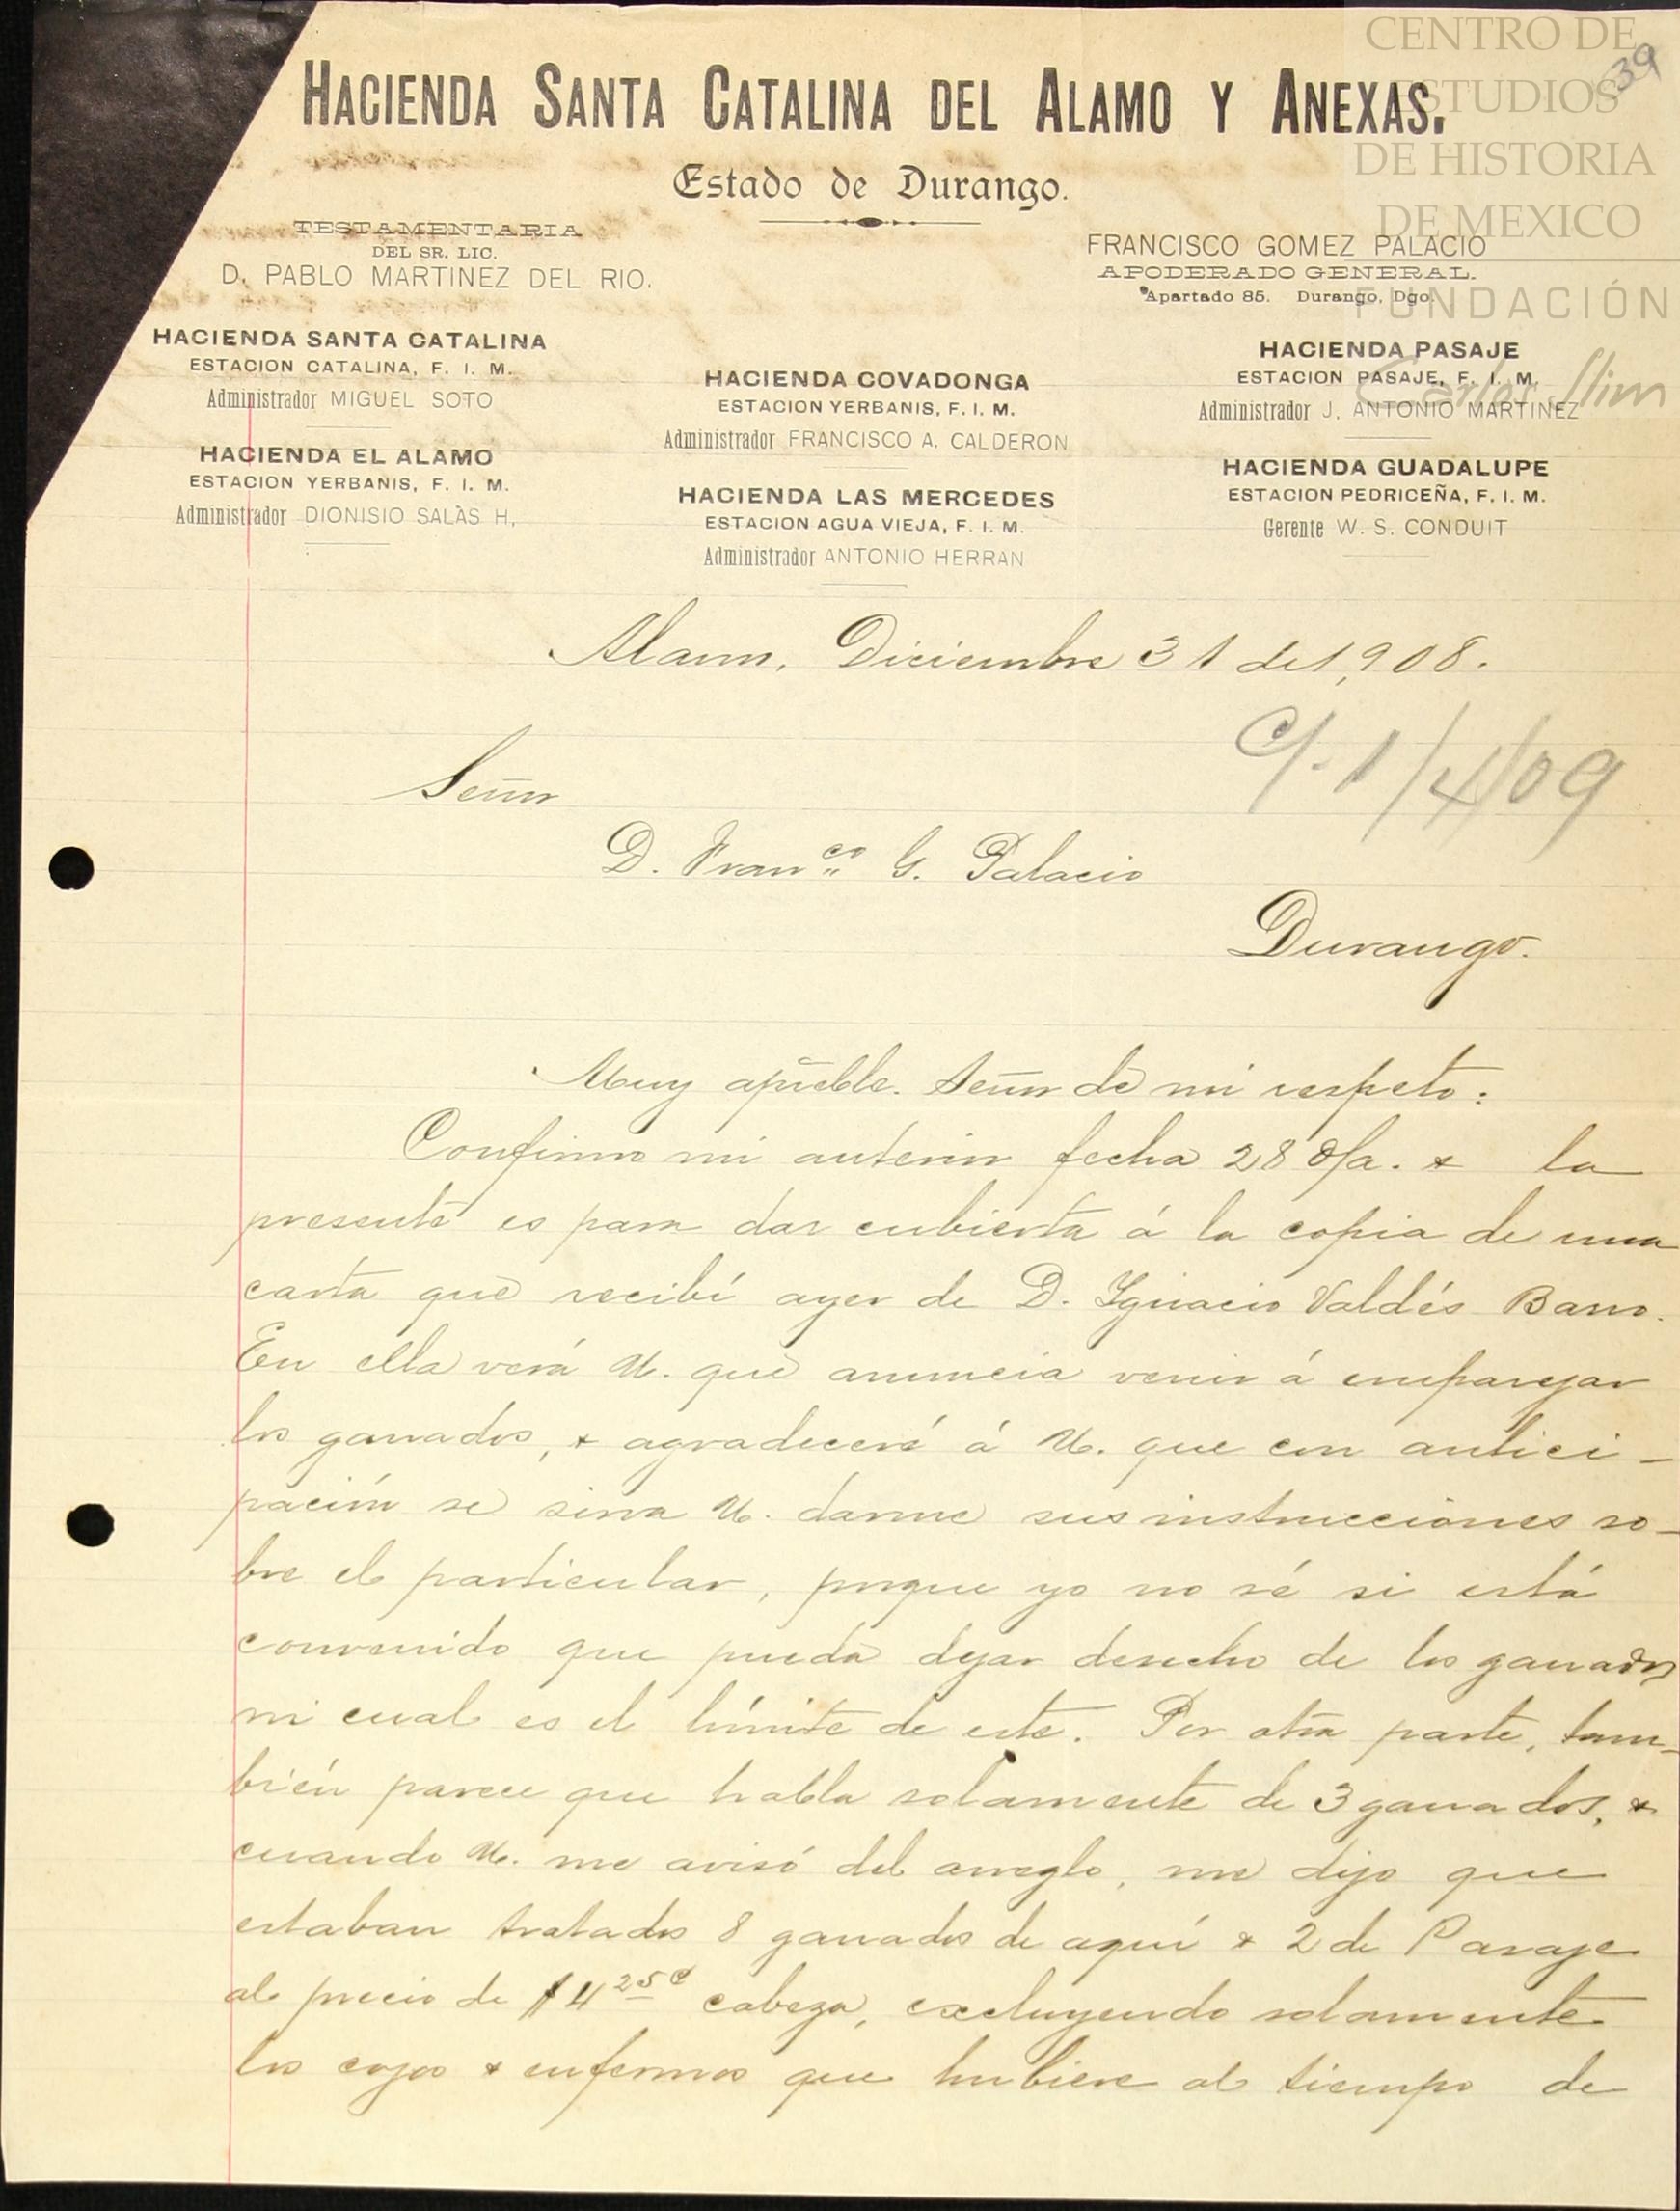 CENTRO DE
ESTUDIOS
DE HISTORIA
DE MEXICO
FUNDACIÓN
Carlos Slim
39
HACIENDA SANTA CATALINA DEL ALAMO Y ANEXAS.
Estado de Durango.
TESTAMENTARIA
DEL SR. LIC.
D. PABLO MARTINEZ DEL RIO.
FRANCISCO GOMEZ PALACIO
APODERADO GENERAL.
Apartado 85. Durango, Dgo.
HACIENDA SANTA CATALINA
ESTACION CATALINA, F. I. M.
Administrador MIGUEL SOTO
HACIENDA EL ALAMO
ESTACION YERBANIS, F. I. M.
Administrador DIONISIO SALAS H.
HACIENDA COVADONGA
ESTACION YERBANIS, F. I. M.
Administrador FRANCISCO A. CALDERON
HACIENDA LAS MERCEDES
ESTACION AGUA VIEJA, F. I. M.
Administrador ANTONIO HERRAN
HACIENDA PASAJE
ESTACION PASAJE, F. I. M.
Administrador J. ANTONIO MARTINEZ
HACIENDA GUADALUPE
ESTACION PEDRICEÑA, F. I. M.
Gerente W. S. CONDUIT
Alamo, Diciembre 31 de 1,908.
C/. 1/4/09
Señor
D. Franco G. Palacio
Durango.
Muy apreble. Señor de mi respeto:
Confirmo mi anterior fecha 28 & la
presente es para dar cubierta á la copia de una
carta que recibí ayer de D. Ignacio Valdés Barro.
En ella verá U. que anuncia venir á emparejar
los ganados, & agradeceré á U. que con antici-
pación se sirva U. darme sus instrucciones so-
bre el particular, porque yo no sé si está
convenido que pueda dejar desecho de los ganados
ni cual es el límite de este. Por otra parte, tam-
bién parece que habla solamente de 3 ganados, &
cuando U. me avisó del arreglo, me dijo que
estaban tratados 8 ganados de aquí & 2 de Pasaje
al precio de $4 25 c cabeza, excluyendo solamente
los cojos & enfermos que hubiere al tiempo de